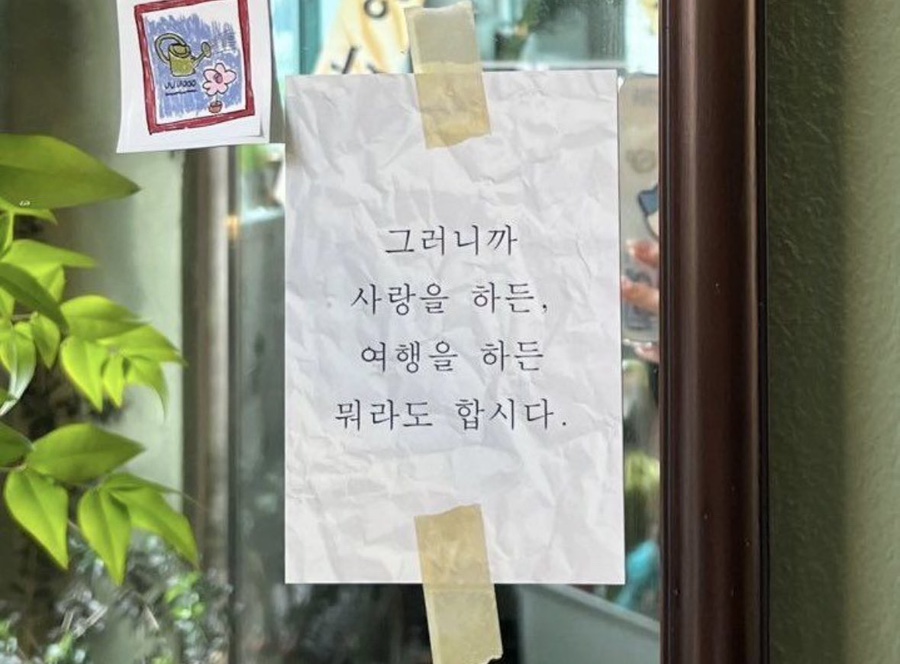 그러니까
사랑을 하든,
여행을 하든
뭐라도 합시다.